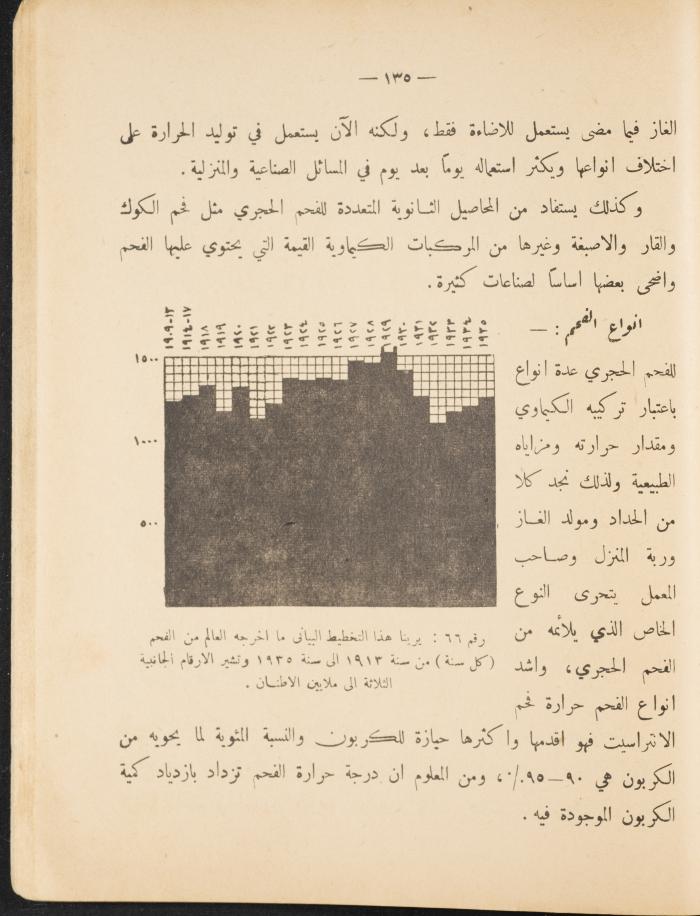 — ١٣٥ —
الغاز فيما مضى يستعمل للاضاءة فقط، ولكنه الآن يستعمل في توليد الحرارة على
اختلاف انواعها ويكثر استعماله يوماً بعد يوم في المسائل الصناعية والمنزلية.
وكذلك يستفاد من المحاصيل الثانوية المتعددة للفحم الحجري مثل فحم الكوك
والقار والاصبغة وغيرها من المركبات الكيماوية القيمة التي يحتوي عليها الفحم
واضحى بعضها اساساً لصناعات كثيرة.
انواع الفحم : —
للفحم الحجري عدة انواع
باعتبار تركيبه الكيماوي
ومقدار حرارته ومزاياه
الطبيعية ولذلك نجد كلا
من الحداد ومولد الغاز
وربة المنزل وصاحب
المعمل يتحرى النوع
الخاص الذي يلائمه من
الفحم الحجري، واشد
انواع الفحم حرارة فحم
١٩٠٩-١٣
١٩١٤-١٧
١٩١٨
١٩١٩
١٩٢٠
١٩٢١
١٩٢٢
١٩٢٣
١٩٢٤
١٩٢٥
١٩٢٦
١٩٢٧
١٩٢٨
١٩٢٩
١٩٣٠
١٩٣١
١٩٣٢
١٩٣٣
١٩٣٤
١٩٣٥
١٥٠٠
١٠٠٠
٥٠٠
رقم ٦٦ : يرينا هذا التخطيط البياني ما اخرجه العالم من الفحم
(كل سنة) من سنة ١٩١٣ الى سنة ١٩٣٥ وتشير الارقام الجانبية
الثلاثة الى ملايين الاطنان.
الانتراسيت فهو اقدمها واكثرها حيازة للكربون والنسبة المئوية لما يحويه من
الكربون هي ٩٠—٩٥٪، ومن المعلوم ان درجة حرارة الفحم تزداد بازدياد كمية
الكربون الموجودة فيه.